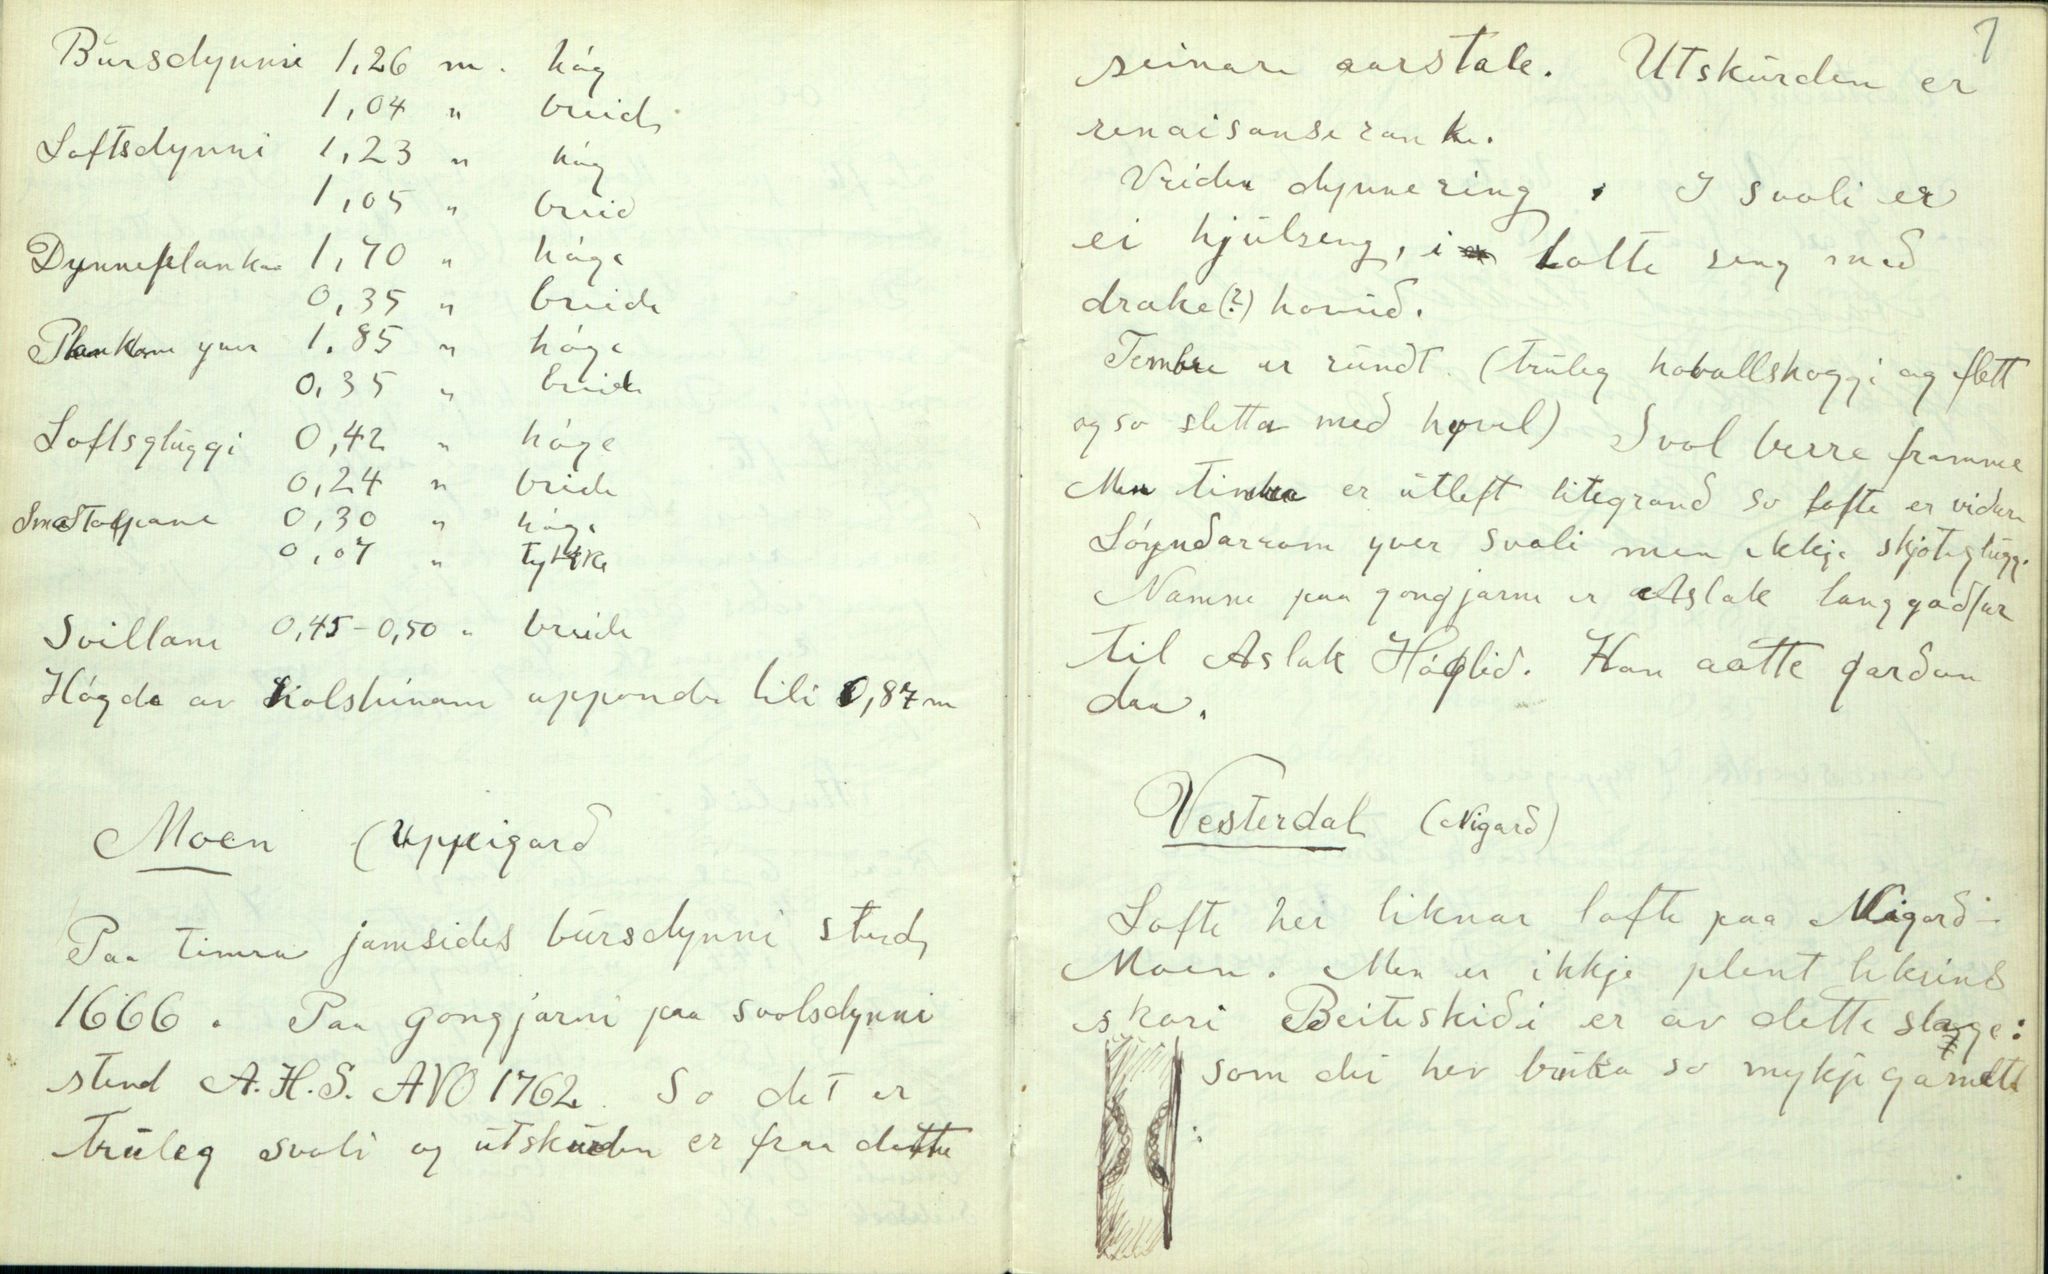 Bursdynni 1,26 m. hóg
1,04 " breid
Loftsdynni 1,23 " hóg
1,05 " breid
Dynneplankan 1,70 " hóge
0,35 " breide
Plankann yver 1.85 " hóge
0,35 " breide
Loftsgluggi 0,42 " hóge
0,24 " breide
Smaastolpane 0,30 " hóge
0,07 " tykke
Svillann 0,45-0,50 " breide
Hógde av uppunde tili 0,87 m
Moen (Uppigard
Paa timra jamsides bursdynni stend
1666. Paa gongjarni paa svolsdynni
stend A.H.S. ANO 1762. So det er
truleg svoli og utskurden er fraa dette
7
seinare aarstale. Utskurden er
renaisanse ranke.
Vriden dynnering. I svoli er
ei hjulseng, i Lofte seng med
drake(?) hovud.
Tembre er rundt. (truleg hovallshoggi og flett
og so sletta med hyvel) Svol berre framme
Men timbre er utleft litegrand so lofte er vidare
Lóyndarrom yver svoli men ikkje skjoteglugg.
Namne paa gongjarne er Aslak langgodfar
til Aslak Hóglid. Han aatte garden
daa.
Vesterdal (Nigard)
Lofte her liknar lofte paa Nigard-
Moen. Men er ikkje plent likeins
skori Beiteskidi er av dette slage:
som dei hev bruka so mykje gamelt
: